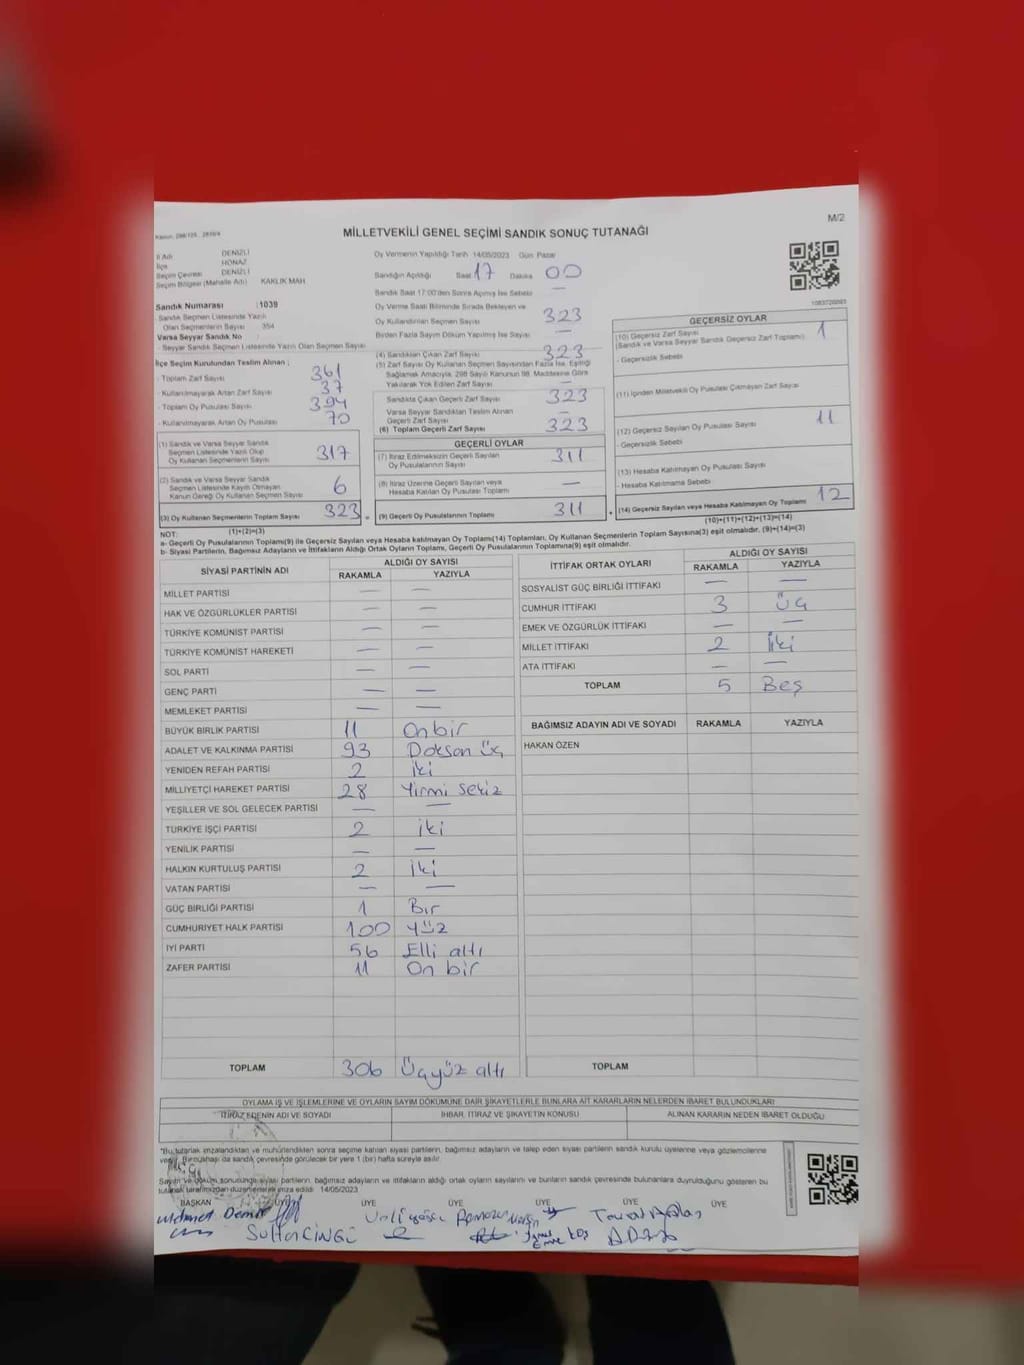 M/2
MİLLETVEKİLİ GENEL SEÇİMİ SANDIK SONUÇ TUTANAĞI
İl Adı DENİZLİ
İlçe HONAZ
Seçim Çevresi DENİZLİ
Seçim Bölgesi (Mahalle Adı) KAKLIK MAH
Sandık Numarası : 1039
- Sandık Seçmen Listesinde Yazılı
Olan Seçmenlerin Sayısı 354
Varsa Seyyar Sandık No :
- Seyyar Sandık Seçmen Listesinde Yazılı Olan Seçmen Sayısı
İlçe Seçim Kurulundan Teslim Alınan ;
- Toplam Zarf Sayısı 361
- Kullanılmayarak Artan Zarf Sayısı 37
- Toplam Oy Pusulası Sayısı 394
- Kullanılmayarak Artan Oy Pusulası 70
(1) Sandık ve Varsa Seyyar Sandık
Seçmen Listesinde Yazılı Olup
Oy Kullanan Seçmenlerin Sayısı 317
(2) Sandık ve Varsa Seyyar Sandık
Seçmen Listesinde Kayıtlı Olmayan
Kanun Gereği Oy Kullanan Seçmen Sayısı 6
(3) Oy Kullanan Seçmenlerin Toplam Sayısı 323
(1)+(2)=(3)
Oy Vermenin Yapıldığı Tarih 14/05/2023 Gün Pazar
Sandığın Açıldığı Saat 17 Dakika 00
Sandık Saat 17:00'den Sonra Açılmış İse Sebebi —
Oy Verme Saati Bitiminde Sırada Bekleyen ve
Oy Kullandırılan Seçmen Sayısı 323
Birden Fazla Sayım Döküm Yapılmış İse Sayısı —
(4) Sandıktan Çıkan Zarf Sayısı 323
(5) Zarf Sayısı Oy Kullanan Seçmen Sayısından Fazla İse, Eşitliği
Sağlamak Amacıyla, 298 Sayılı Kanunun 98. Maddesine Göre
Yakılarak Yok Edilen Zarf Sayısı —
Sandıkta Çıkan Geçerli Zarf Sayısı 323
Varsa Seyyar Sandıktan Teslim Alınan
Geçerli Zarf Sayısı —
(6) Toplam Geçerli Zarf Sayısı 323
GEÇERLİ OYLAR
(7) İtiraz Edilmeksizin Geçerli Sayılan
Oy Pusulalarının Sayısı 311
(8) İtiraz Üzerine Geçerli Sayılan veya
Hesaba Katılan Oy Pusulası Toplamı —
(9) Geçerli Oy Pusulalarının Toplamı 311
GEÇERSİZ OYLAR
(10) Geçersiz Zarf Sayısı 1
(Sandık ve Varsa Seyyar Sandık Geçersiz Zarf Toplamı)
- Geçersizlik Sebebi
(11) İçinden Milletvekili Oy Pusulası Çıkmayan Zarf Sayısı
(12) Geçersiz Sayılan Oy Pusulası Sayısı 11
- Geçersizlik Sebebi
(13) Hesaba Katılmayan Oy Pusulası Sayısı
- Hesaba Katılmama Sebebi
(14) Geçersiz Sayılan veya Hesaba Katılmayan Oy Toplamı 12
(10)+(11)+(12)+(13)=(14)
NOT:
a- Geçerli Oy Pusulaları Toplamı(9) ile Geçersiz Sayılan veya Hesaba katılmayan Oy Toplamı(14) Toplamları, Oy Kullanan Seçmenlerin Toplam Sayısına(3) eşit olmalıdır. (9)+(14)=(3)
b- Siyasi Partilerin, Bağımsız Adayların ve İttifakların Aldığı Ortak Oyların Toplamı, Geçerli Oy Pusulalarının Toplamına(9) eşit olmalıdır.
SİYASİ PARTİNİN ADI ALDIĞI OY SAYISI
RAKAMLA YAZIYLA
MİLLET PARTİSİ — —
HAK VE ÖZGÜRLÜKLER PARTİSİ — —
TÜRKİYE KOMÜNİST PARTİSİ — —
TÜRKİYE KOMÜNİST HAREKETİ — —
SOL PARTİ — —
GENÇ PARTİ — —
MEMLEKET PARTİSİ — —
BÜYÜK BİRLİK PARTİSİ 11 On bir
ADALET VE KALKINMA PARTİSİ 93 Doksan üç
YENİDEN REFAH PARTİSİ 2 iki
MİLLİYETÇİ HAREKET PARTİSİ 28 Yirmi sekiz
YEŞİLLER VE SOL GELECEK PARTİSİ — —
TÜRKİYE İŞÇİ PARTİSİ 2 iki
YENİLİK PARTİSİ — —
HALKIN KURTULUŞ PARTİSİ 2 iki
VATAN PARTİSİ — —
GÜÇ BİRLİĞİ PARTİSİ 1 Bir
CUMHURİYET HALK PARTİSİ 100 yüz
İYİ PARTİ 56 Elli altı
ZAFER PARTİSİ 11 On bir
TOPLAM 306 Üçyüz altı
İTTİFAK ORTAK OYLARI ALDIĞI OY SAYISI
RAKAMLA YAZIYLA
SOSYALİST GÜÇ BİRLİĞİ İTTİFAKI — —
CUMHUR İTTİFAKI 3 üç
EMEK VE ÖZGÜRLÜK İTTİFAKI — —
MİLLET İTTİFAKI 2 İki
ATA İTTİFAKI — —
TOPLAM 5 Beş
BAĞIMSIZ ADAYIN ADI VE SOYADI RAKAMLA YAZIYLA
HAKAN ÖZEN
TOPLAM
OYLAMA İŞ VE İŞLEMLERİNE VE OYLARIN SAYIM DÖKÜMÜNE DAİR ŞİKAYETLERLE BUNLARA AİT KARARLARIN NELERDEN İBARET BULUNDUKLARI
İTİRAZ EDENİN ADI VE SOYADI İHBAR, İTİRAZ VE ŞİKAYETİN KONUSU ALINAN KARARIN NEDEN İBARET OLDUĞU
*Bu tutanak imzalandıktan ve mühürlendikten sonra seçime katılan siyasi partilerin, bağımsız adayların ve talep eden siyasi partilerin sandık kurulu üyelerine veya gözlemcilerine
verilir. Bir nüshası da sandık çevresinde görülecek bir yere 1 (bir) hafta süreyle asılır.
Sayım ve döküm sonucunda siyasi partilerin, bağımsız adayların ve ittifakların aldığı ortak oyların sayılarını ve bunların sandık çevresinde bulunanlara duyrulduğunu gösteren bu
tutanak tarafımızdan düzenlenerek imza edildi. 14/05/2023
BAŞKAN ÜYE ÜYE ÜYE ÜYE ÜYE ÜYE
Mehmet Demir